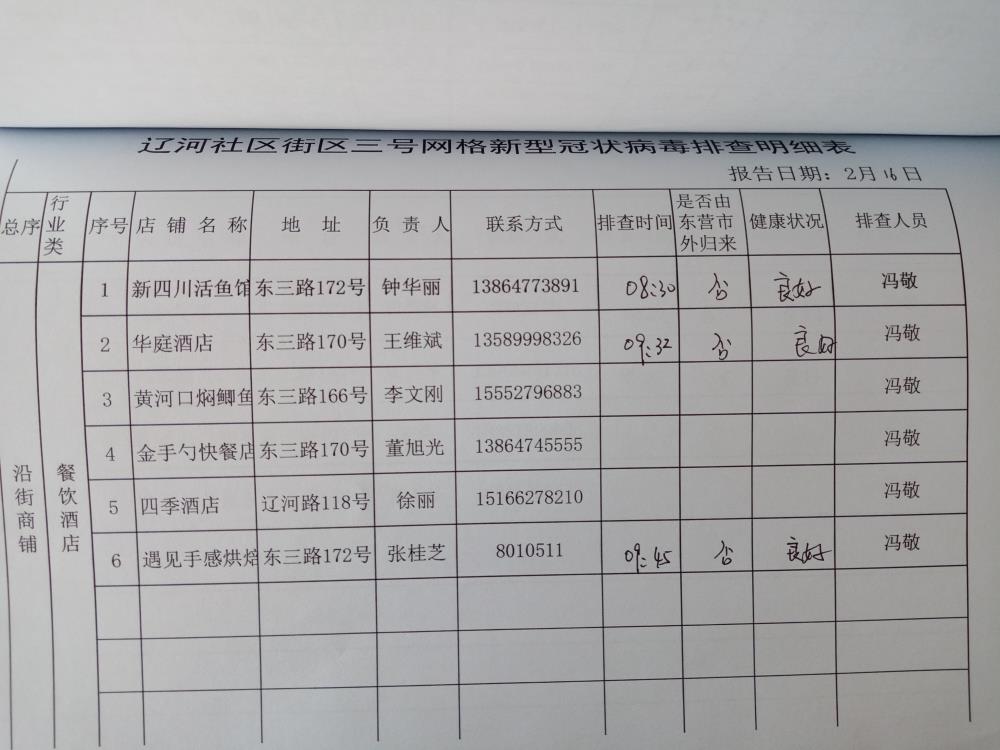 辽河社区街区三号网格新型冠状病毒排查明细表
报告日期：2月16日
总序 行业类 序号 店铺名称 地址 负责人 联系方式 排查时间 是否由东营市外归来 健康状况 排查人员
沿街商铺 餐饮酒店
1 新四川活鱼馆 东三路172号 钟华丽 13864773891 08:30 否 良好 冯敬
2 华庭酒店 东三路170号 王维斌 13589998326 09:32 否 良好 冯敬
3 黄河口焖鲫鱼 东三路166号 李文刚 15552796883 冯敬
4 金手勺快餐店 东三路170号 董旭光 13864745555 冯敬
5 四季酒店 辽河路118号 徐丽 15166278210 冯敬
6 遇见手感烘焙 东三路172号 张桂芝 8010511 09:45 否 良好 冯敬